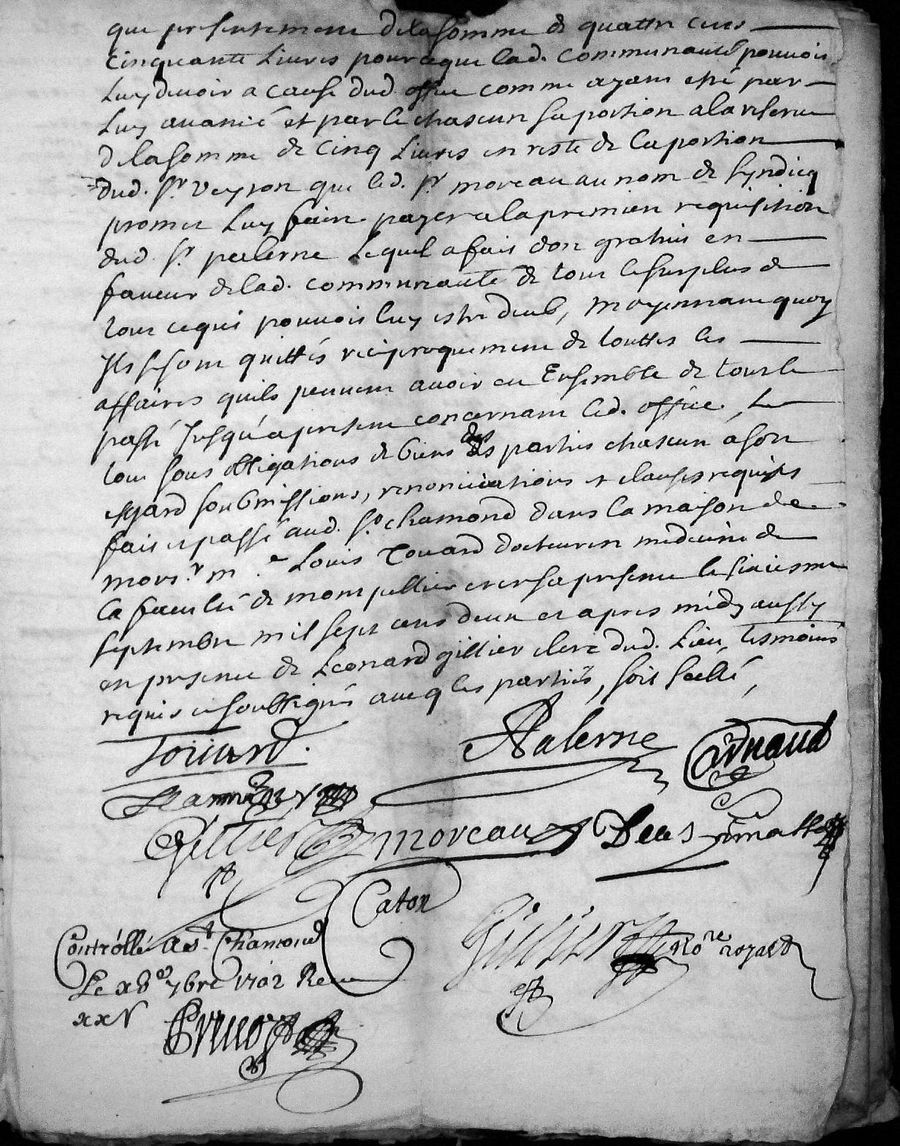 que presentement de la somme de quattre cens
cinquante Livres pour ce que lad. communauté pouvoit
Luy devoir a cause dud. office comme ayant esté par
Luy avancé et par le chascun sa portion a la reserve
de la somme de Cinq Livres en reste de la portion
dud. Sr. Veyron que led. Sr. moreau au nom de Syndicq
promet Luy faire payer a la premiere requisition
dud. Sr. palerne Lequel a fait don gratuis en
faveur de lad. communauté de tout le surplus de
tout ce qui pouvoit luy estre deub, moyennant quoy
Ils se sont quittés reciproquement de touttes les
affaires quils peuvent avoir eu Ensemble de tout le
passé Jusqu'a present concernant led. office, Le
tout sous obligations de biens des parties chascun a son
esgard soubmissions, renonciations et clauses requises
fait et passé aud. St. chamond dans la maison de
mons.r m.e Louis Touard docteur en medecine de
La faculté de montpellier et en sa presence le siziesme
septembre mil sept cens deux et apres midy aussy
en presence de Leonard gillier clerc dud. Lieu, tesmoins
requis et soussignés avecq les parties, soit scellé,
Touard.
Palerne
Arnaud
Gillier
moreau
Caton
Gillier Nore royal
Controllé a st. Chamond
Le 7bre 1702 Receu
xxv